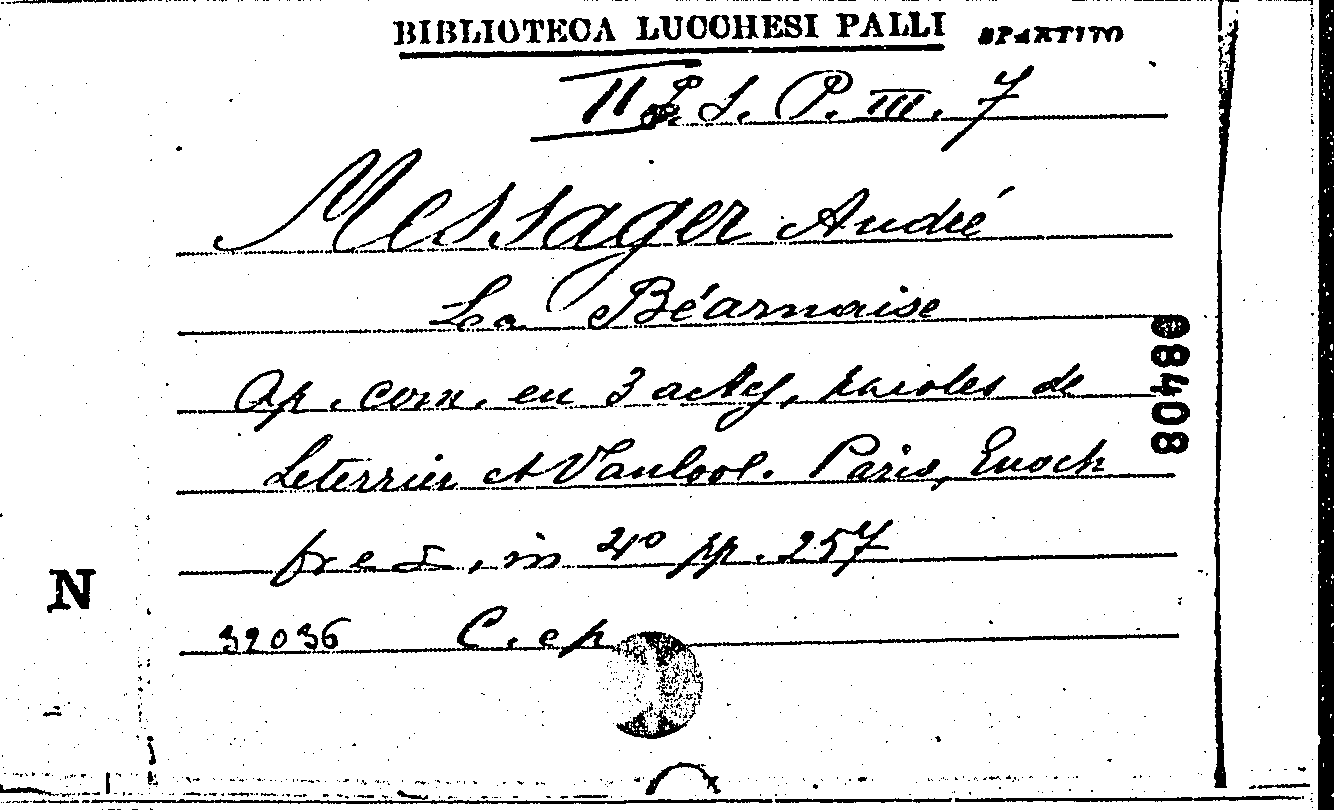 BIBLIOTECA LUCCHESI PALLI SPARTITO
II L. S. P. III. 7
Messager André
La Béarnaise
Op. com. en 3 actes, paroles de
Leterrier et Vanloo. Paris, Enoch
fres, in 4º pp. 257
32036 C. ep.
N
08408